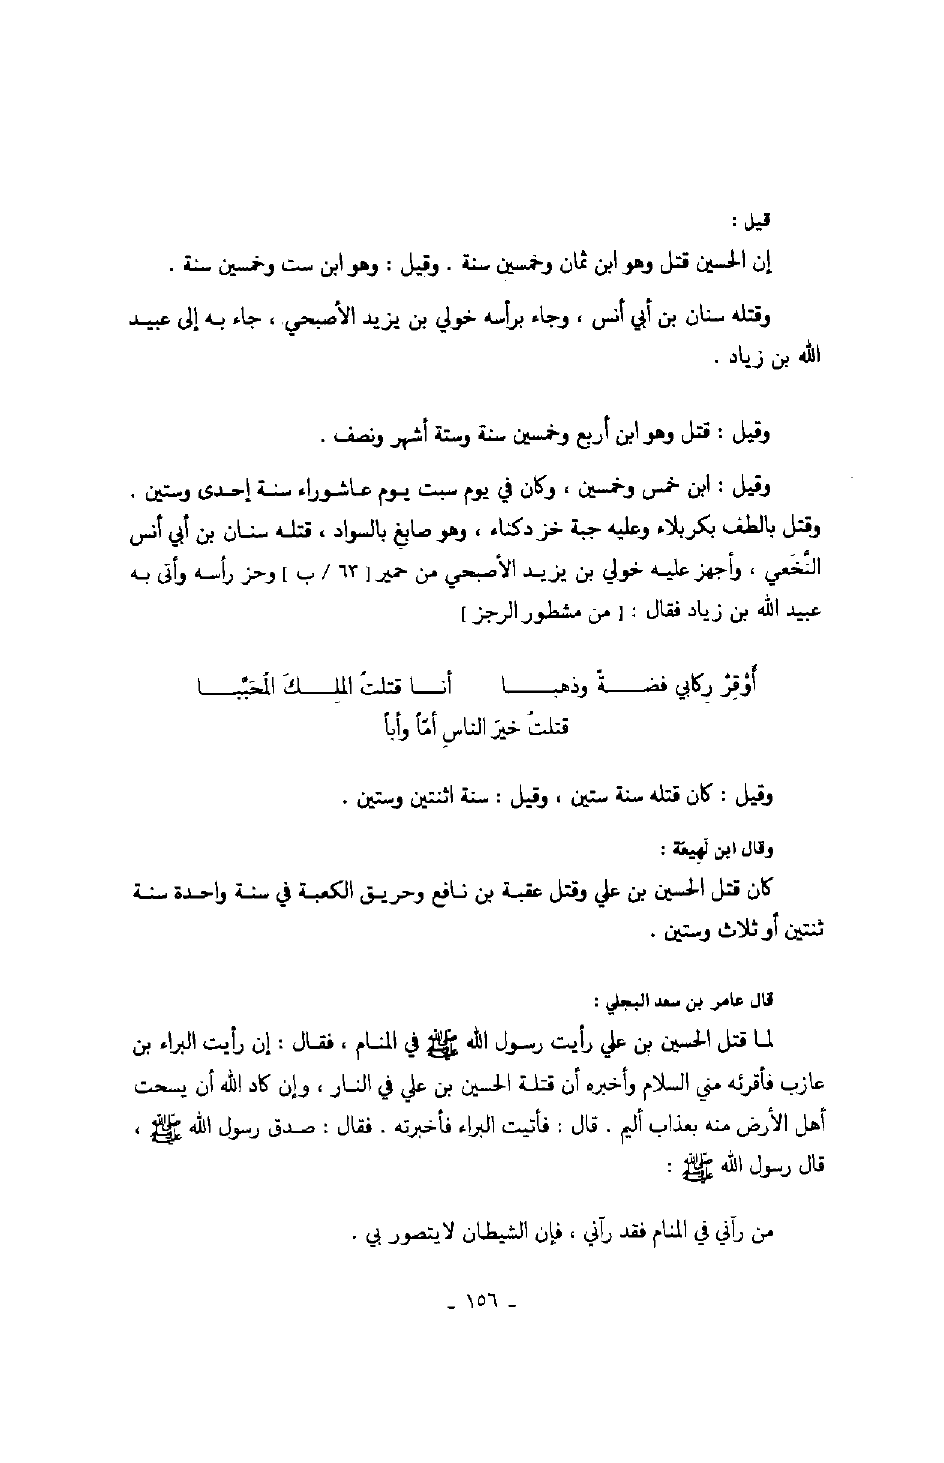 قيل :
إن الحسين قتل وهو ابن ثمان وخمسين سنة . وقيل : وهو ابن ست وخمسين سنة .
وقتله سنان بن أبي أنس ، وجاء برأسه خولي بن يزيد الأصبحي ، جاء به إلى عبيد
الله بن زياد .
وقيل : قتل وهو ابن أربع وخمسين سنة وستة أشهر ونصف .
وقيل : ابن خمس وخمسين ، وكان في يوم سبت يوم عاشوراء سنة إحدى وستين .
وقتل بالطف بكربلاء وعليه جبة خز دكناء ، وهو صابغ بالسواد ، قتله سنان بن أبي أنس
النَّخَعي ، وأجهز عليه خولي بن يزيد الأصبحي من حمير [ ٦٣ / ب ] وحز رأسه وأتى به
عبيد الله بن زياد فقال : [ من مشطور الرجز ]
أَوْقِرْ رِكابي فضةً وذهبا أنا قتلتُ الملِكَ المُحَجَّبا
قتلتُ خيرَ الناسِ أمّاً وأباً
وقيل : كان قتله سنة ستين ، وقيل : سنة اثنتين وستين .
وقال ابن لهيعة :
كان قتل الحسين بن علي وقتل عقبة بن نافع وحريق الكعبة في سنة واحدة سنة
ثنتين أو ثلاث وستين .
قال عامر بن سعد البجلي :
لما قتل الحسين بن علي رأيت رسول الله ﷺ في المنام ، فقال : إن رأيت البراء بن
عازب فأقرئه مني السلام وأخبره أن قتلة الحسين بن علي في النار ، وإن كاد الله أن يسحت
أهل الأرض منه بعذاب أليم . قال : فأتيت البراء فأخبرته . فقال : صدق رسول الله ﷺ ،
قال رسول الله ﷺ :
من رآني في المنام فقد رآني ، فإن الشيطان لا يتصور بي .
- ١٥٦ -